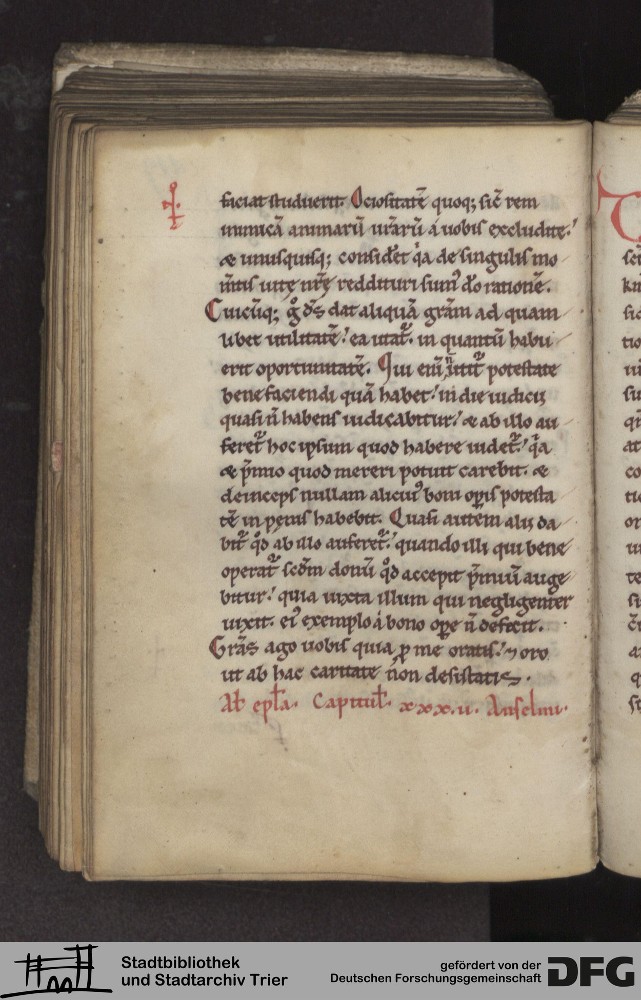 faciat studuerit. Ociositatē quoq; sic̄ rem
inimicā animarū vr̄arū a uobis excludite.
æ unusquisq; considet̄ q̄a de singulis mo
m̄tis uitę nr̄ę reddituri sum᷒ dō rationē.
Cuicūq; g̊ dſ̄ dat aliquā gr̄am ad quam
libet utilitatē ea utat᷑. in quantū habu
erit oportunitatē. Qui eni n̄ utit᷑ potestate
bene faciendi quā habet in die iudicii
quasi n̄ habens iudicabitur æ ab illo au
feret᷑ hoc ipsum quod habere uidet᷑. q̄a
æ p̄mio quod mereri potuit carebit. æ
deinceps nullam alicui᷒ boni opis potesta
tē in penis habebit. Quasi autem aliis da
bit᷑ qd̊ ab illo auferet᷑. quando illi qui bene
operat᷑ scd̄m donū qd̊ accepit p̄miū auge
bitur. quia iuxta illum qui negligenter
uixit. ei᷒ exemplo a bono ope n̄ deficit.
Grās ago uobis quia p me oratis. ⁊ oro
ut ab hac caritate non desistatis.
Ab epl̄a. Capitul̄. xxx.ii. Anselmi.
Stadtbibliothek
und Stadtarchiv Trier
gefördert von der
Deutschen Forschungsgemeinschaft
DFG